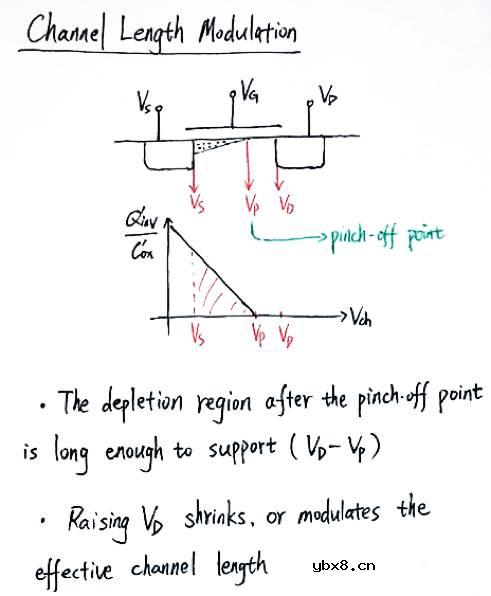 Channel Length Modulation
Vs
VG
VD
Vs
Vp
VD
pinch-off point
Q'inv
C'ox
Vch
Vs
Vp
VD
· The depletion region after the pinch-off point
is long enough to support (VD-Vp)
· Raising VD shrinks, or modulates the
effective channel length
ybx8.cn